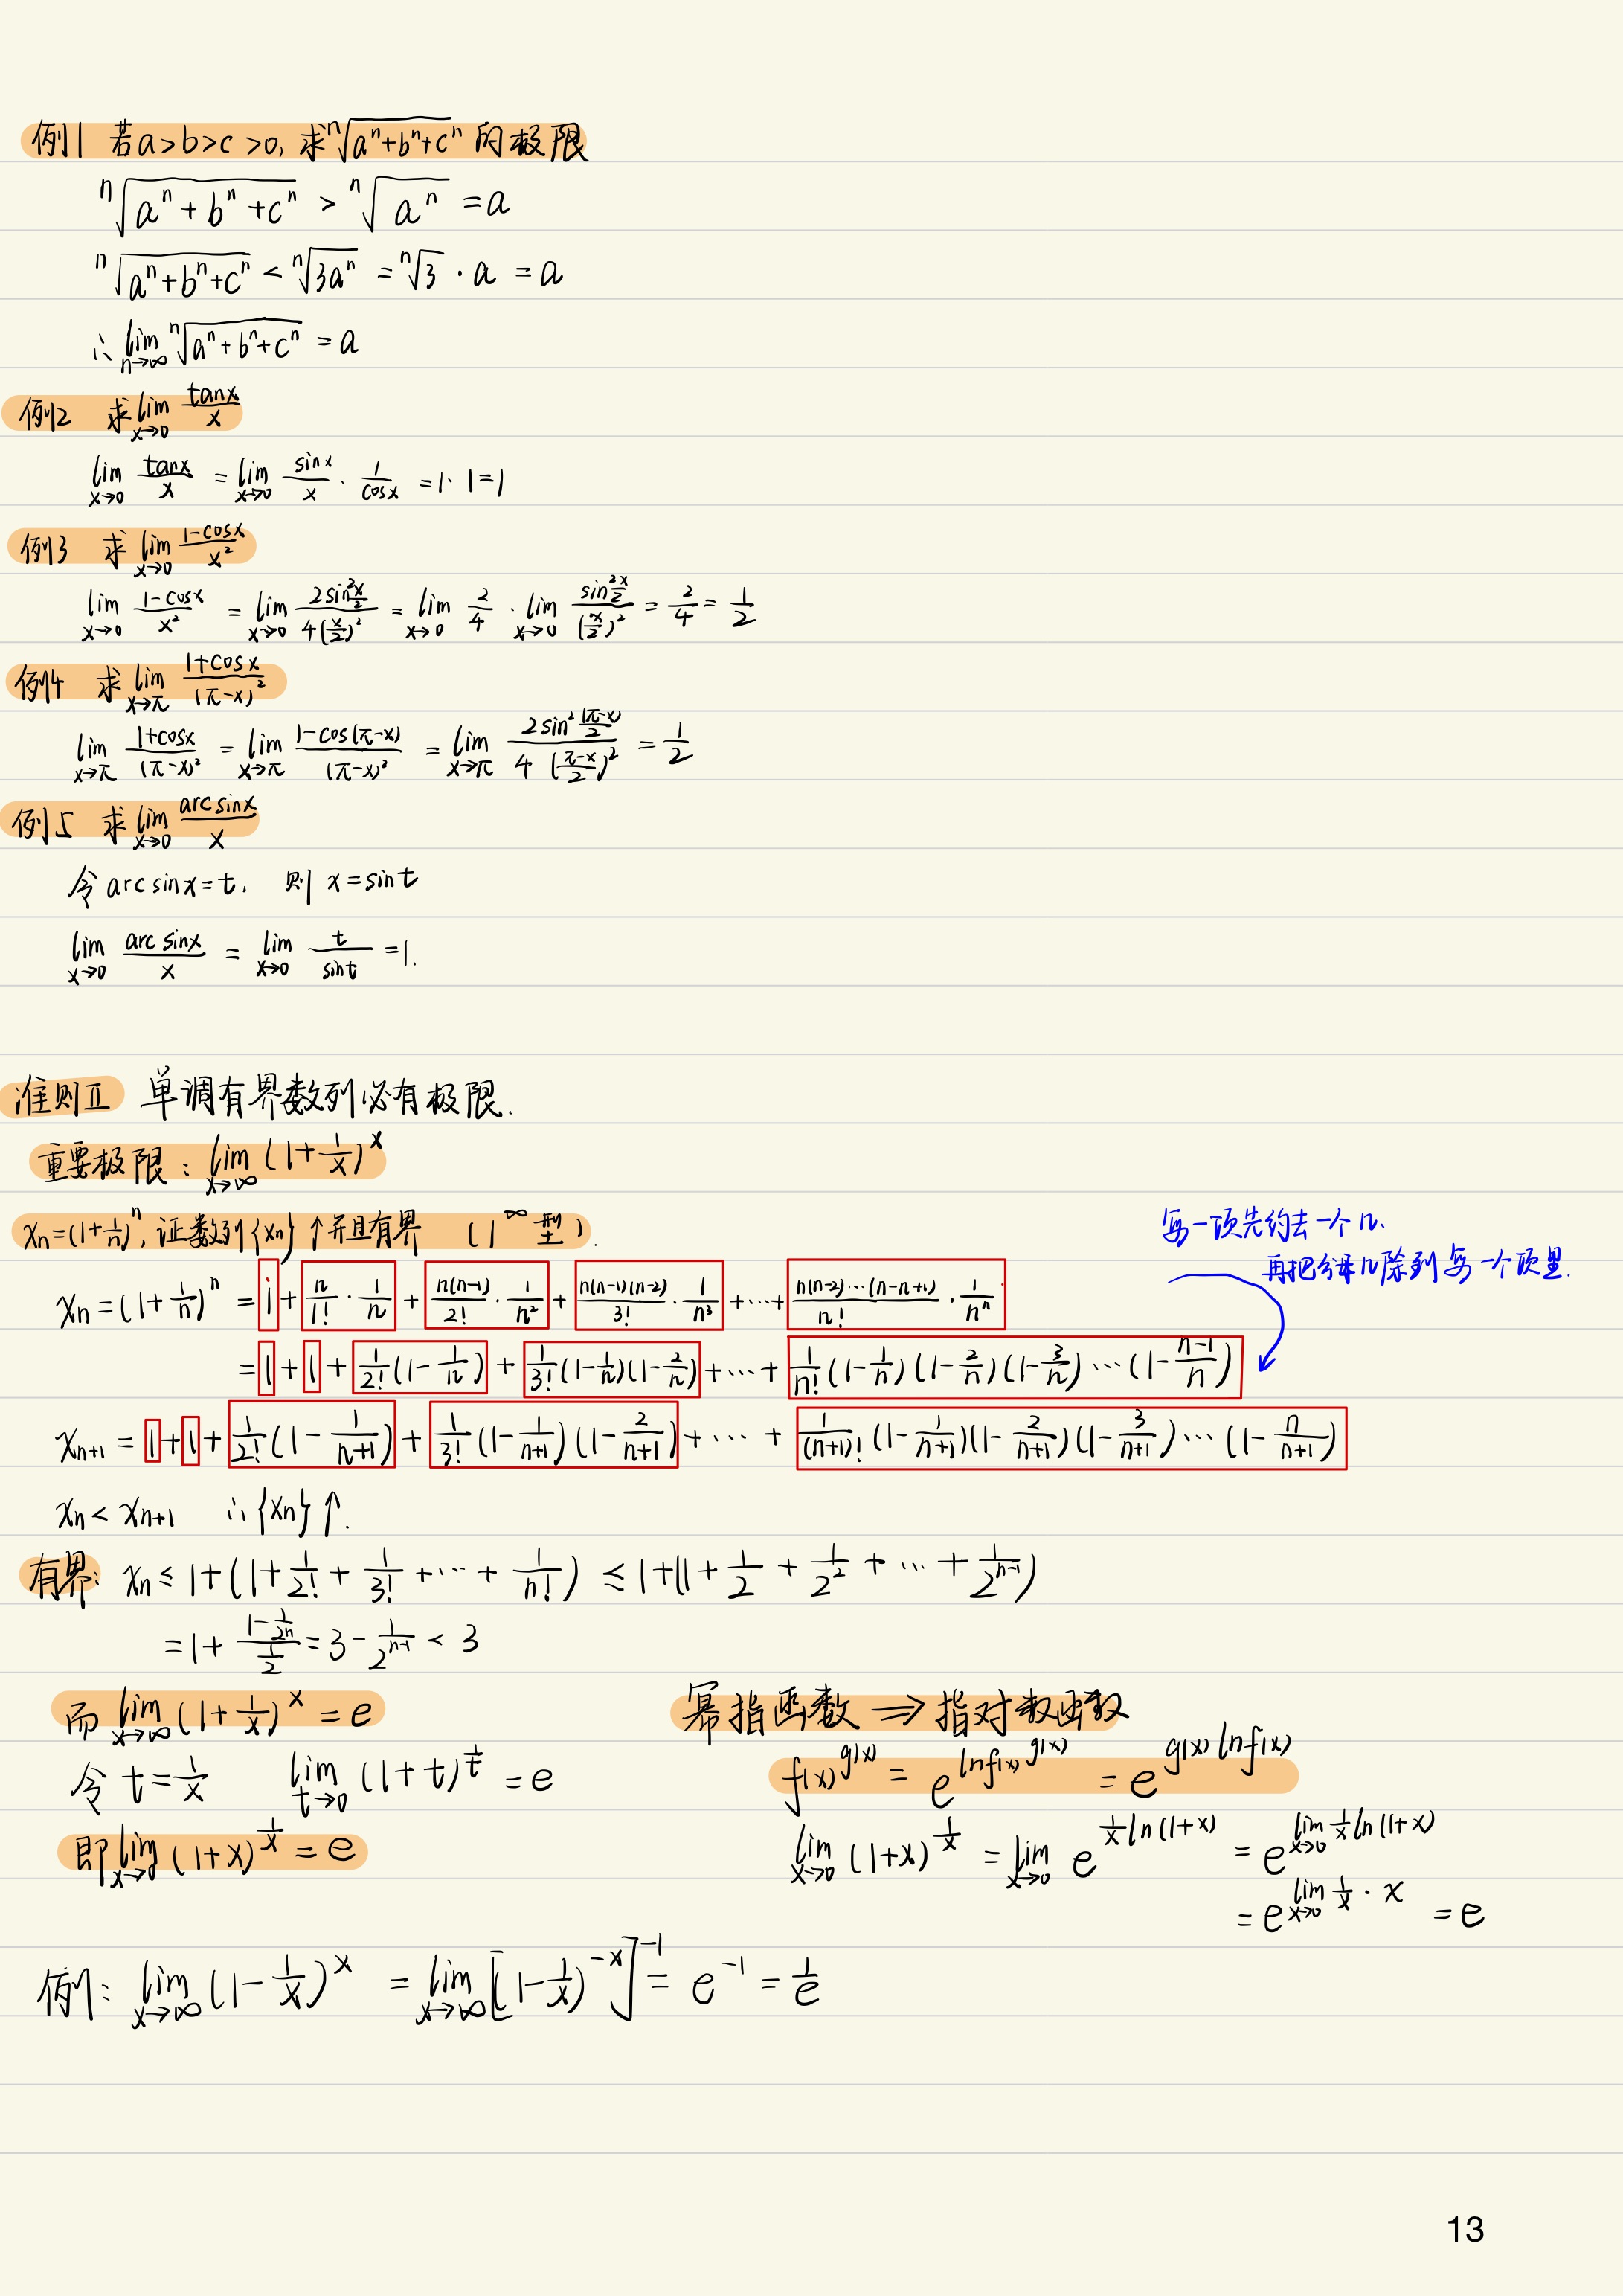 例1 若a>b>c>0, 求ⁿ√(aⁿ+bⁿ+cⁿ) 的极限
ⁿ√(aⁿ+bⁿ+cⁿ) > ⁿ√(aⁿ) = a
ⁿ√(aⁿ+bⁿ+cⁿ) < ⁿ√(3aⁿ) = ⁿ√3 · a = a
∴ lim_{n→∞} ⁿ√(aⁿ+bⁿ+cⁿ) = a
例2 求 lim_{x→0} tanx/x
lim_{x→0} tanx/x = lim_{x→0} sinx/x · 1/cosx = 1·1=1
例3 求 lim_{x→0} (1-cosx)/x²
lim_{x→0} (1-cosx)/x² = lim_{x→0} 2sin²(x/2)/(4(x/2)²) = lim_{x→0} 2/4 · lim_{x→0} sin²(x/2)/(x/2)² = 2/4 = 1/2
例4 求 lim_{x→π} (1+cosx)/(π-x)²
lim_{x→π} (1+cosx)/(π-x)² = lim_{x→π} (1-cos(π-x))/(π-x)² = lim_{x→π} 2sin²((π-x)/2)/(4((π-x)/2)²) = 1/2
例5 求 lim_{x→0} arcsinx/x
令 arcsinx=t, 则 x=sint
lim_{x→0} arcsinx/x = lim_{x→0} t/sint = 1.
准则Ⅱ 单调有界数列必有极限.
重要极限: lim_{x→∞} (1+1/x)^x
xₙ=(1+1/n)ⁿ, 证数列{xₙ}↑并且有界 (1^∞ 型).
每一项先约去一个n.
再把分母n除到每一个项里.
xₙ = (1+1/n)ⁿ = 1 + n/1! · 1/n + n(n-1)/2! · 1/n² + n(n-1)(n-2)/3! · 1/n³ + ⋯ + n(n-2)⋯(n-n+1)/n! · 1/nⁿ
= 1 + 1 + 1/2!(1-1/n) + 1/3!(1-1/n)(1-2/n) + ⋯ + 1/n!(1-1/n)(1-2/n)(1-3/n)⋯(1-(n-1)/n)
xₙ₊₁ = 1+1+ 1/2!(1-1/(n+1)) + 1/3!(1-1/(n+1))(1-2/(n+1)) + ⋯ + 1/(n+1)!(1-1/(n+1))(1-2/(n+1))(1-3/(n+1))⋯(1-n/(n+1))
xₙ < xₙ₊₁ ∴{xₙ}↑.
有界: xₙ ≤ 1+(1+1/2!+1/3!+⋯+1/n!) ≤ 1+(1+1/2+1/2²+⋯+1/2^(n-1))
= 1+ (1-1/2ⁿ)/(1/2) = 3 - 1/2^(n-1) < 3
而 lim_{x→∞} (1+1/x)^x = e
令 t=1/x lim_{t→0} (1+t)^(1/t) = e
即 lim_{x→0} (1+x)^(1/x) = e
幂指函数 ⟹ 指对数函数
f(x)^g(x) = e^(lnf(x)^g(x)) = e^(g(x)lnf(x))
lim_{x→0} (1+x)^(1/x) = lim_{x→0} e^(1/x ln(1+x)) = e^(lim_{x→0} 1/x ln(1+x))
= e^(lim_{x→0} 1/x · x) = e
例: lim_{x→∞} (1-1/x)^x = lim_{x→∞} [(1-1/x)^(-x)]^(-1) = e^(-1) = 1/e
13